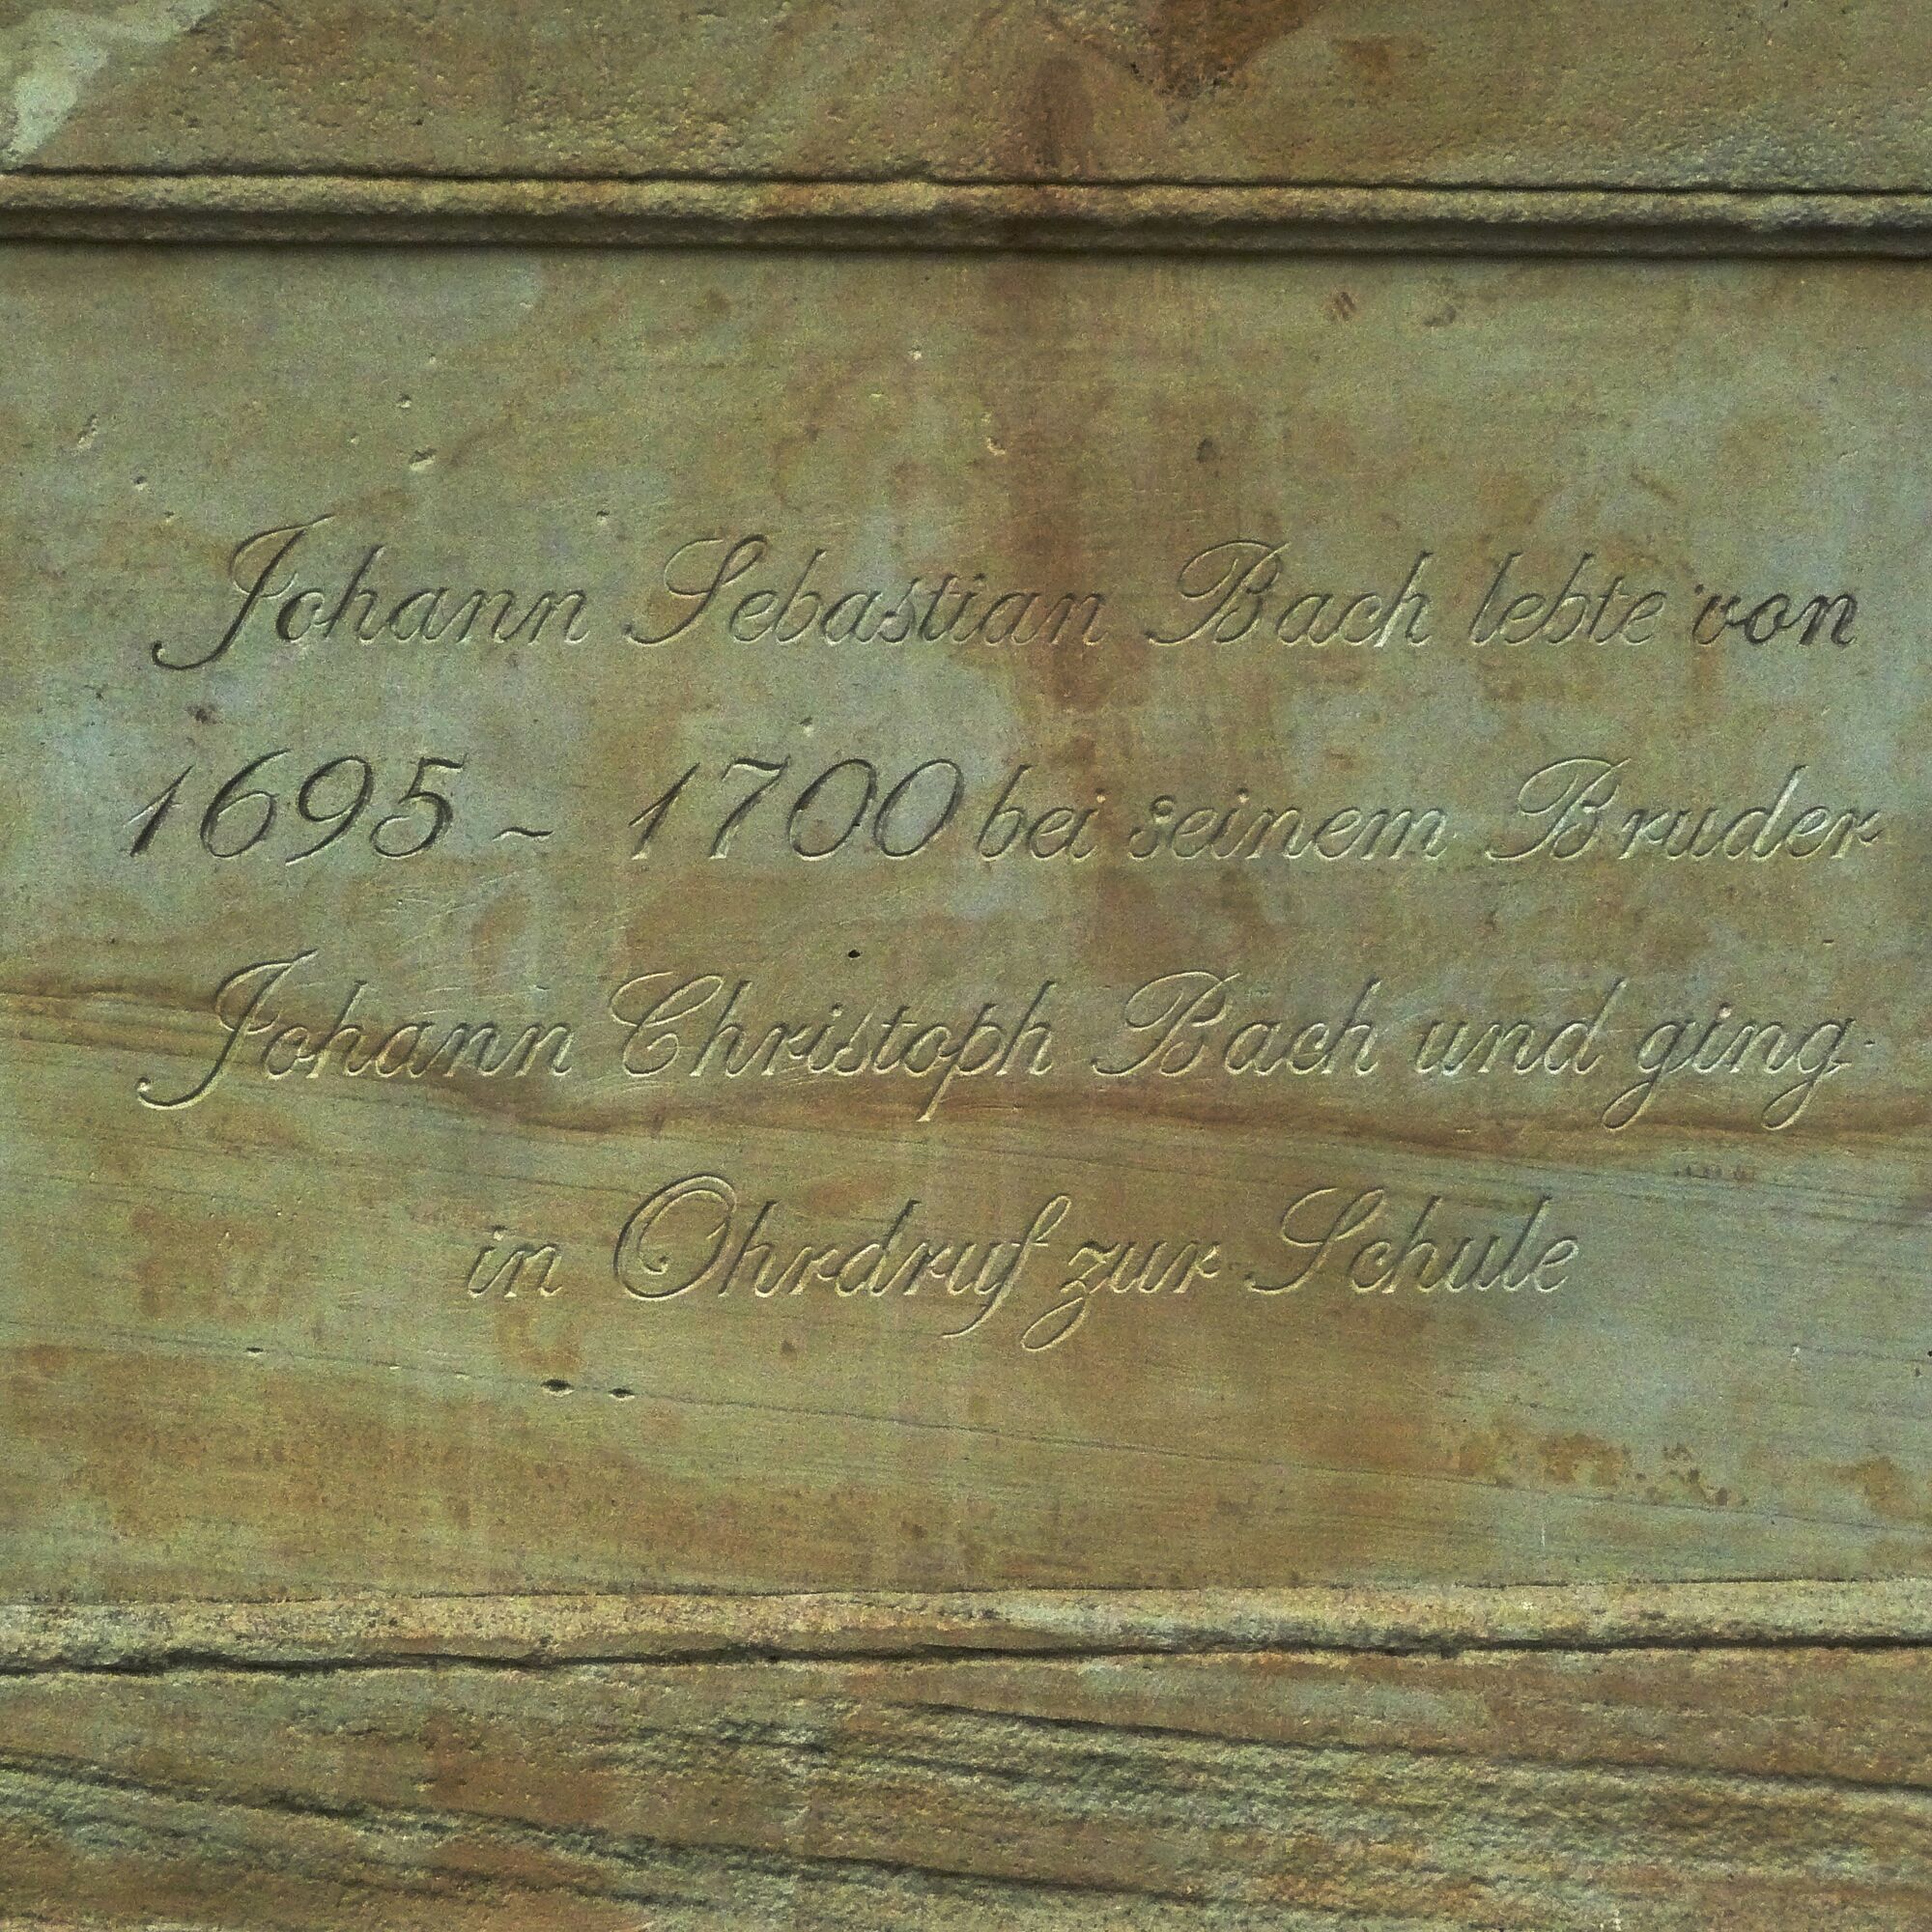 Johann Sebastian Bach lebte von
1695 ~ 1700 bei seinem Bruder
Johann Christoph Bach und ging
in Ohrdruf zur Schule